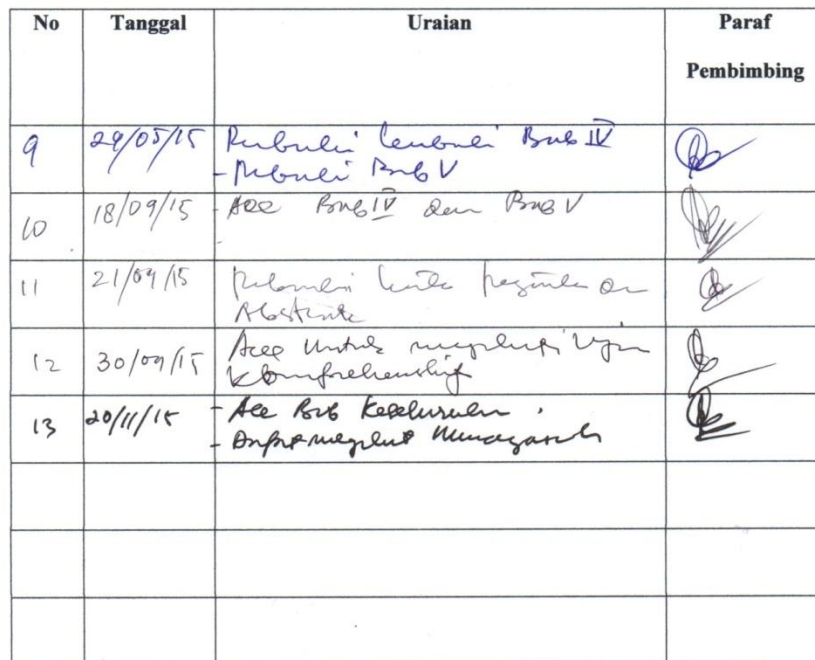 No Tanggal Uraian Paraf
Pembimbing
9 29/05/15 Perbaiki kembali Bab IV
- Perbaiki Bab V
10 18/09/15 - Acc Bab IV dan Bab V
11 21/09/15 Perbaiki kata pengantar dan
Abstrak
12 30/09/15 Acc untuk mengikuti ujian
Komprehenship
13 20/11/15 - Acc Bab Keseluruhan
- Dapat mengikut Munaqasah